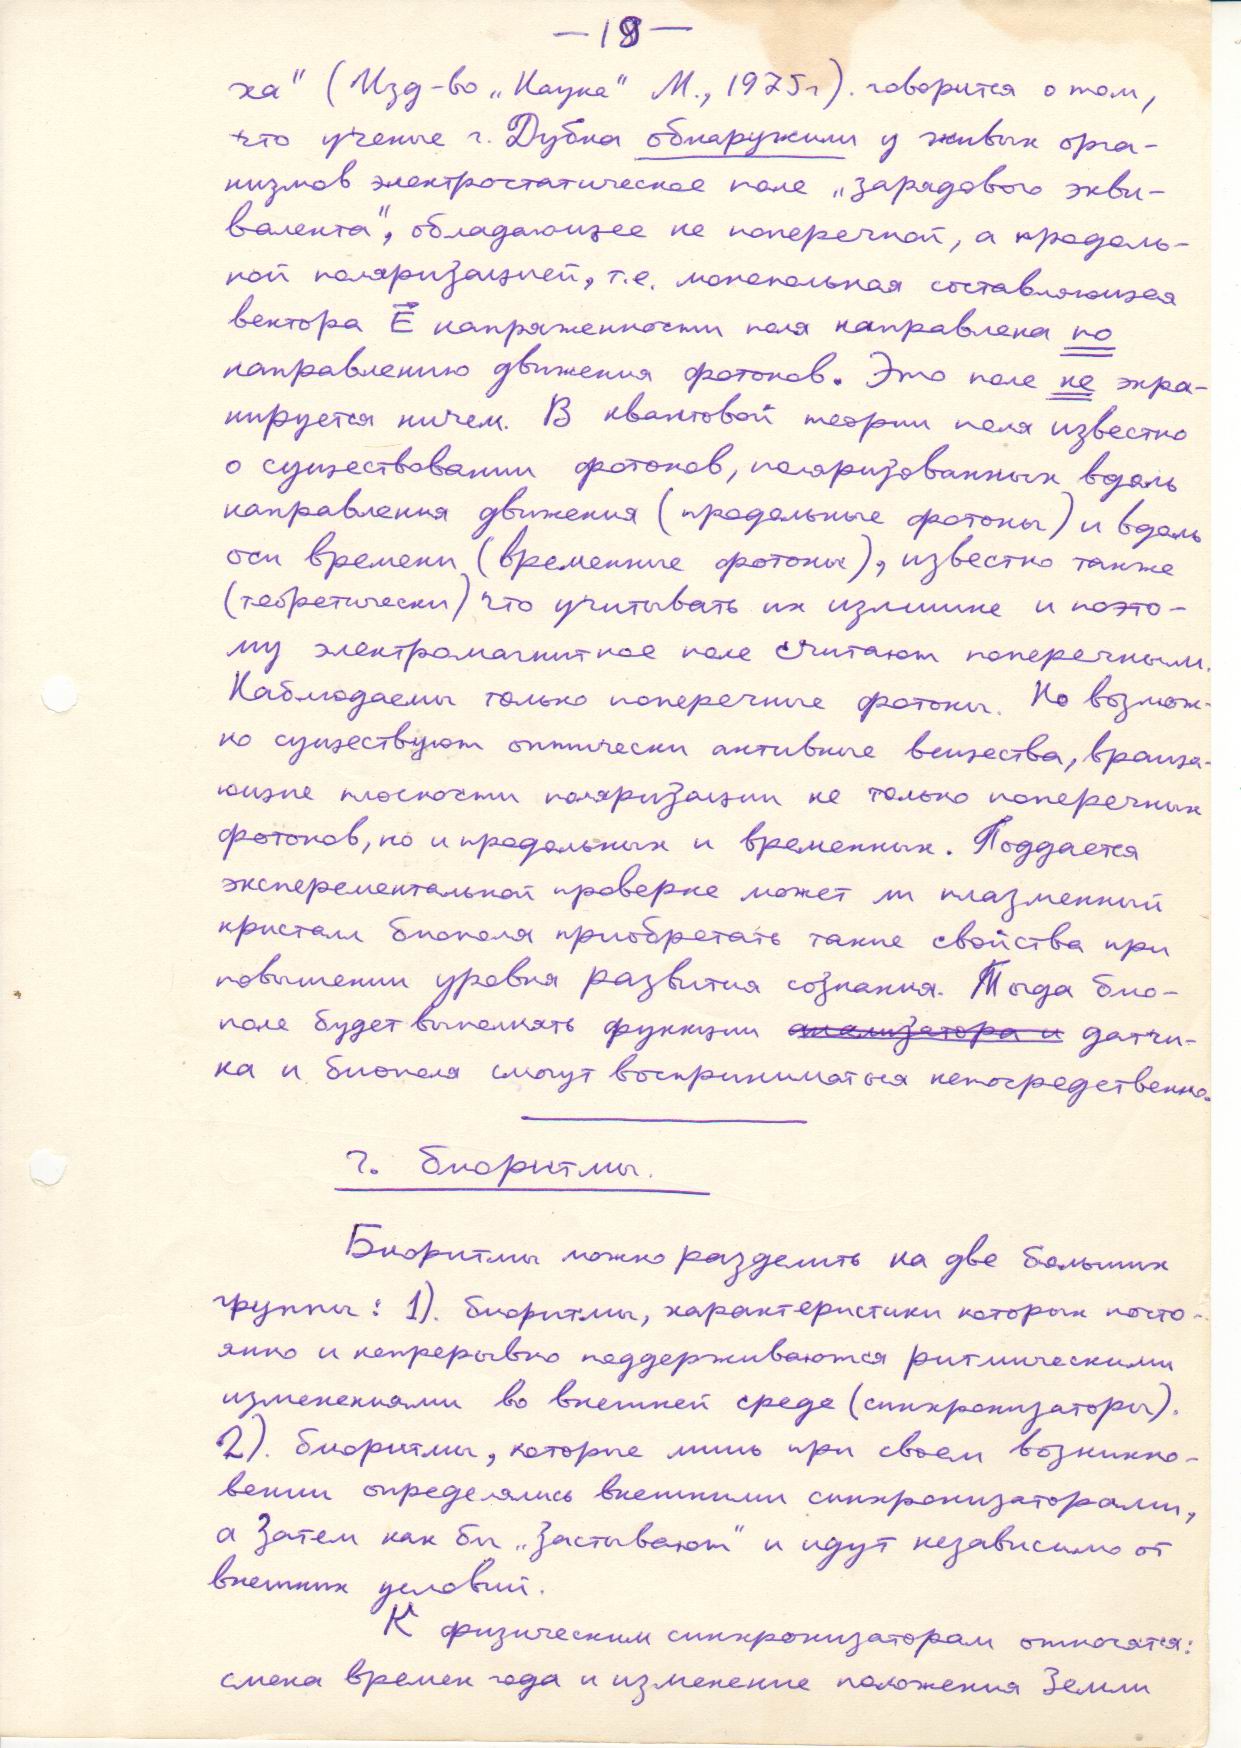 —19—
ха" (Изд-во „Наука" М., 1975г). говорится о том,
что ученые г. Дубна обнаружили у живых орга-
низмов электростатическое поле „зарядового экви-
валента", обладающее не поперечной, а продоль-
ной поляризацией, т.е. монопольная составляющая
вектора E⃗ напряженности поля направлена по
направлению движения фотонов. Это поле не экра-
нируется ничем. В квантовой теории поля известно
о существовании фотонов, поляризованных вдоль
направления движения (продольные фотоны) и вдоль
оси времени (временные фотоны), известно также
(теоретически) что учитывать их излишне и поэто-
му электромагнитное поле считают поперечным.
Наблюдаемы только поперечные фотоны. Но возмож-
но существуют оптически активные вещества, враща-
ющие плоскости поляризации не только поперечных
фотонов, но и продольных и временных. Поддается
эксперементальной проверке может ли плазменный
кристалл биополя приобретать такие свойства при
повышении уровня развития сознания. Тогда био-
поле будет выполнять функции анализатора и датчи-
ка и биополя смогут восприниматься непосредственно.
г. биоритмы.
Биоритмы можно разделить на две больших
группы: 1). биоритмы, характеристики которых посто-
янно и непрерывно поддерживаются ритмическими
изменениями во внешней среде (синхронизаторы).
2). биоритмы, которые лишь при своем возникно-
вении определялись внешними синхронизаторами,
а затем как бы „застывают" и идут независимо от
внешних условий.
К физическим синхронизаторам относятся:
смена времен года и изменение положения Земли